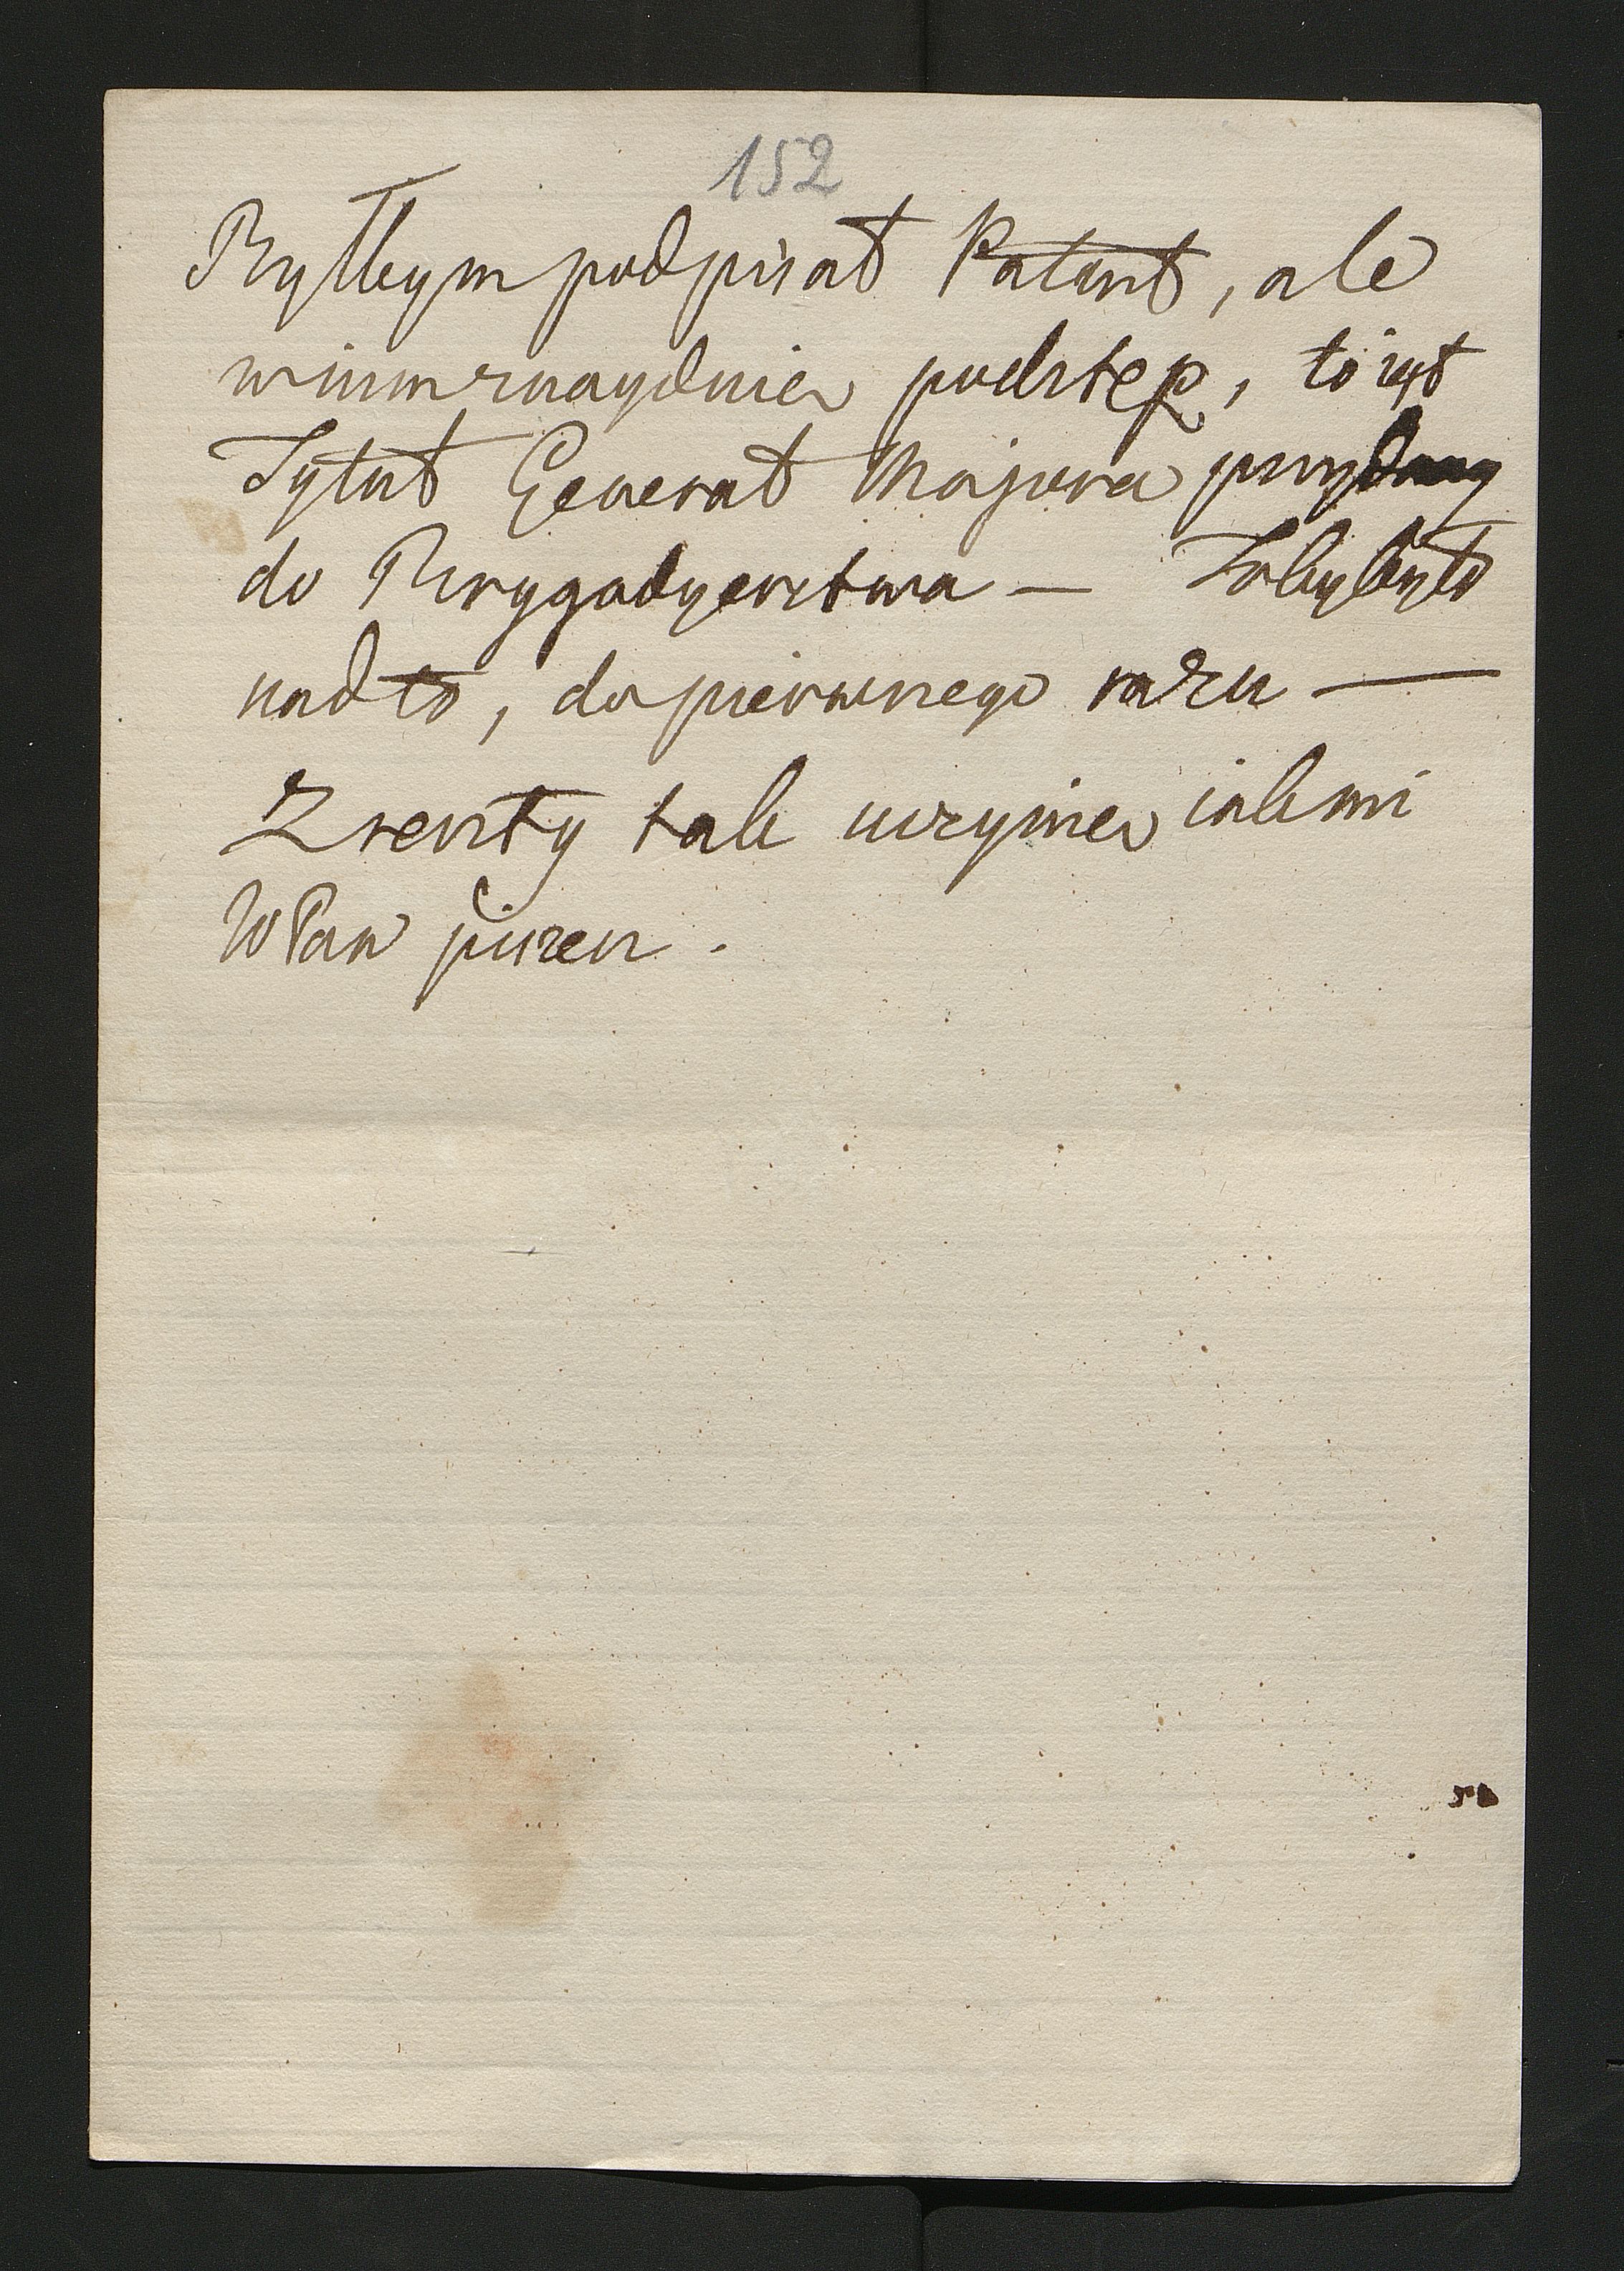 152
Byłbym podpisał Patent, ale
w nim znayduie podstęp, to iest
Tytuł Generał Majora przydany
do Brygadyerstwa — Tobybyło
nadto, do pierwszego razu —
Zreszty tak uczynie iak mi
WPan piszesz.